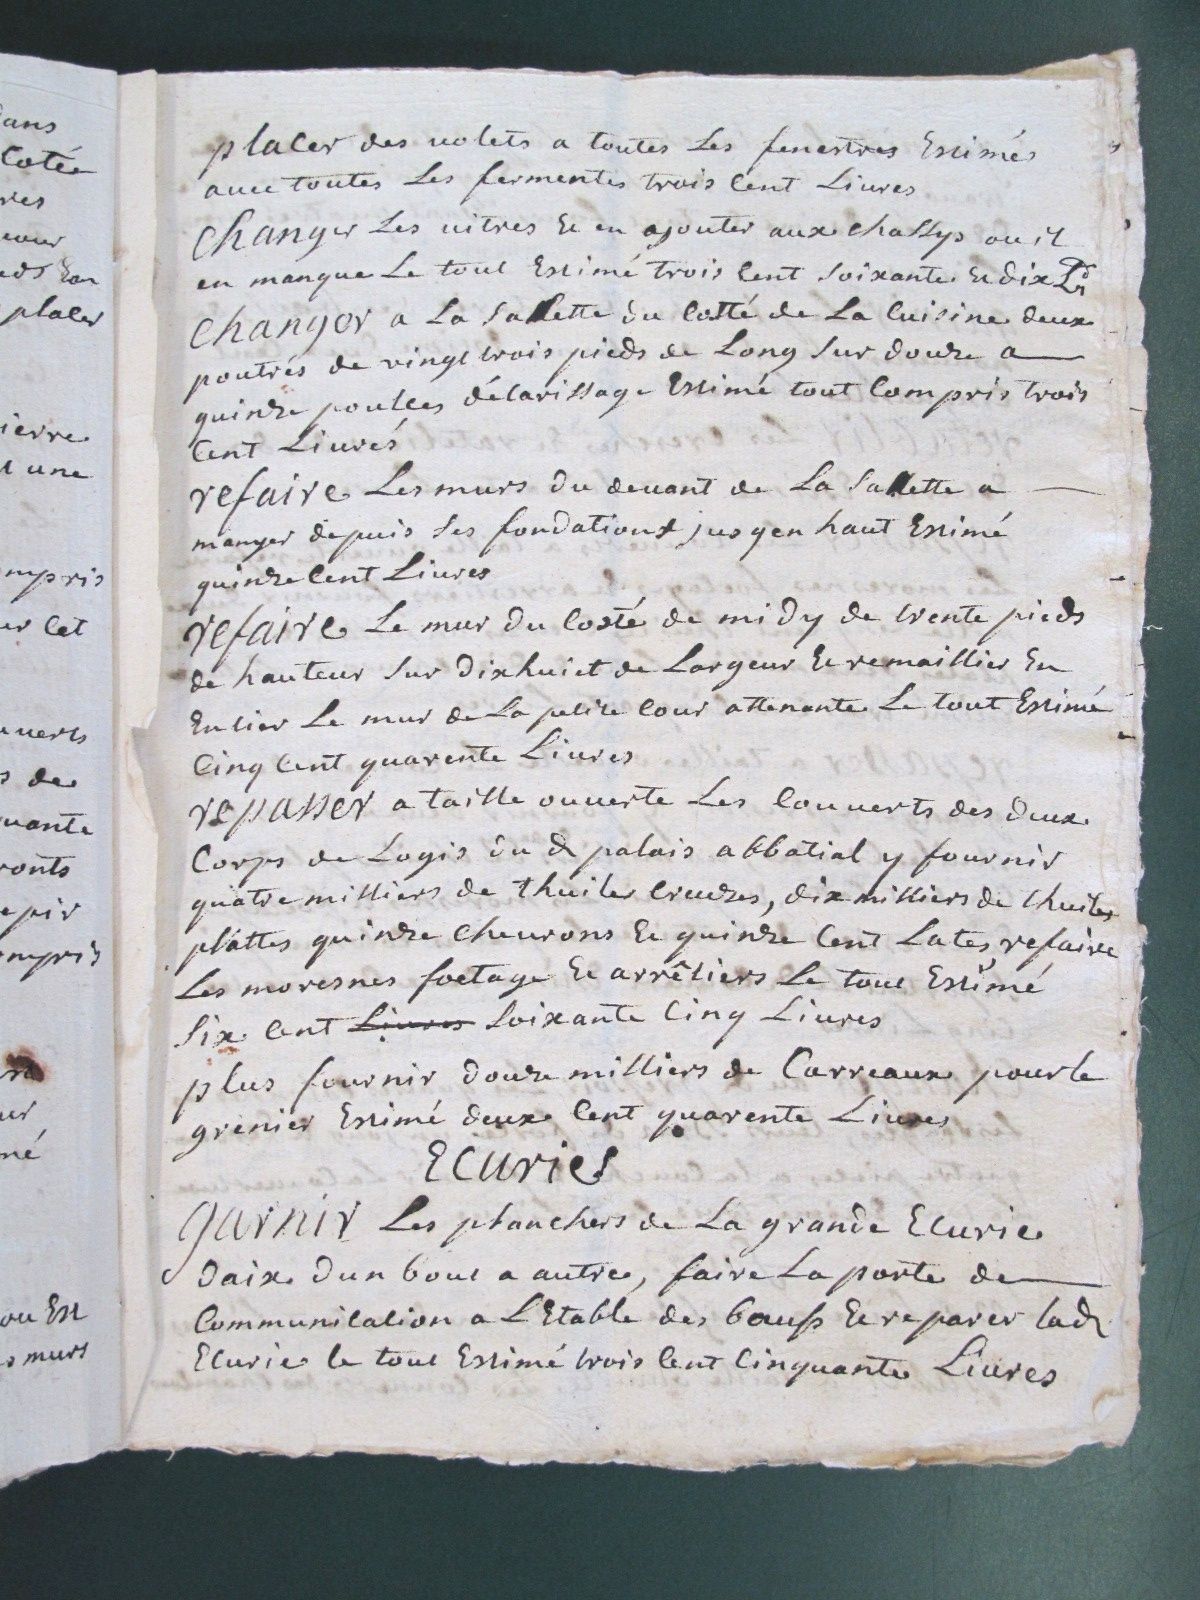 placer des uolets a toutes Les fenestres Estimés
auec toutes Les fermentes trois Cent Liures
Changer Les uitres Et en ajouter aux chassys ou il
en manque Le tout Estimé trois Cent Soixante Et dix Ld
Changer a La Sallette du Costé de La Cuisine deux
poutrés de vingt trois pieds de Long Sur douze a
quinze poulces déCarissage Estimé tout Compris trois
Cent Liurés
refaire Les murs du deuant de La Sallette a
manger depuis Ses fondations jusqen haut Estimé
quinze Cent Liures
refaire Le mur du Costé de midy de trente pieds
de hauteur Sur dixhuict de Largeur Et remaillier En
Entier Le mur de La petite Cour attenante Le tout Estimé
Cinq Cent quarente Liures
repasser a taille ouuerte Les Couuerts des deux
Corps de Logis du d palais abbatial y fournir
quatre milliers de thuiles Creuzes, dix milliers de thuiles
plattes quinze Cheurons Et quinze Cent Lates, refaire
Les moresnes foetage Et arrêtiers Le tout Estimé
Six Cent Liures Soixante Cinq Liures
plus fournir douze milliers de Carreaux pour le
grenier Estimé deux Cent quarente Liures
ECuries
garnir Les planchers de La grande ECurie
daix dun bout a autre, faire La porte de
Communication a LEtable des bœufs Et reparer lad
ECurie le tout Estimé trois Cent Cinquante Liures
ans
Cotée
res
placer
ierre
une
mpris
er Cet
uuerts
s de
uante
ronts
epir
ompris
ur
mé
ou Est
s murs